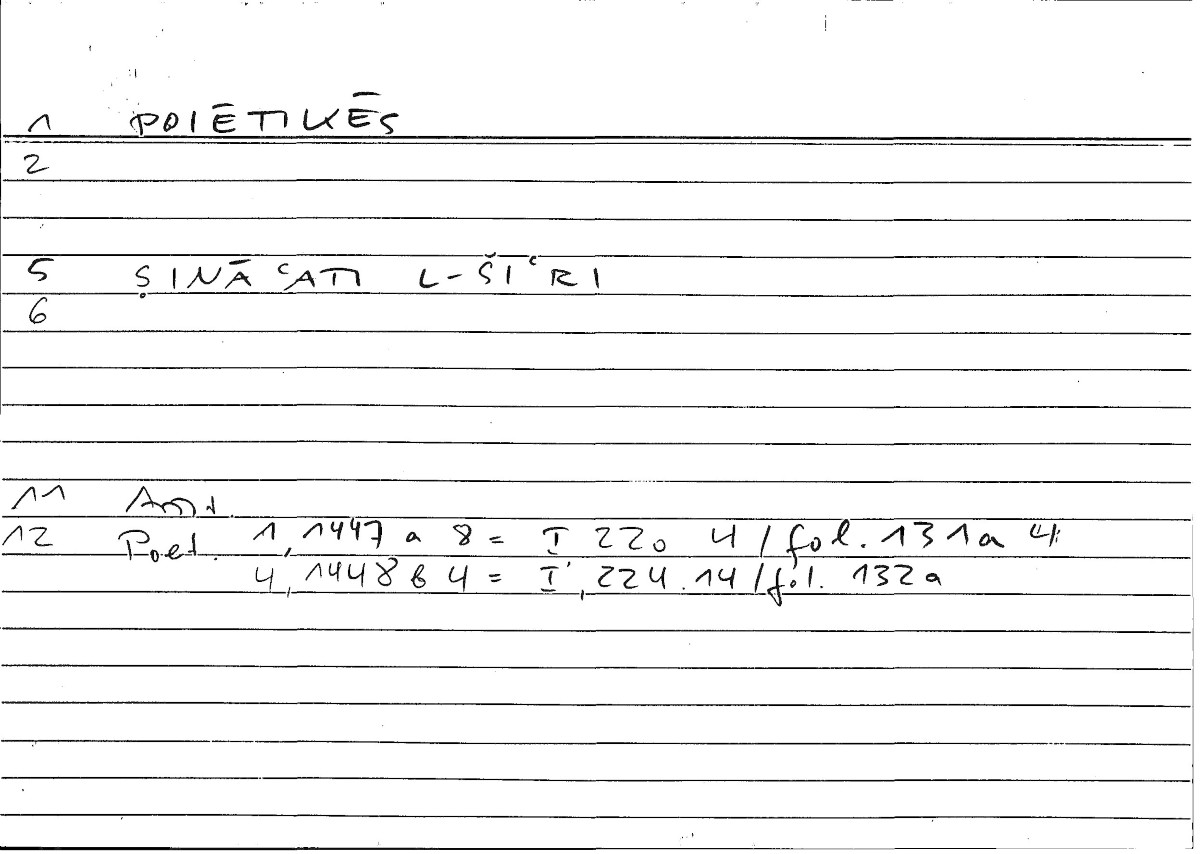 1 POIĒTIKĒS
2
5 ṢINĀʿATI L-ŠIʿRI
6
11 Arist.
12 Poet. 1,1447 a 8 = I 220 4 / fol. 131a 4
4,1448 b 4 = I, 224.14 / fol. 132a